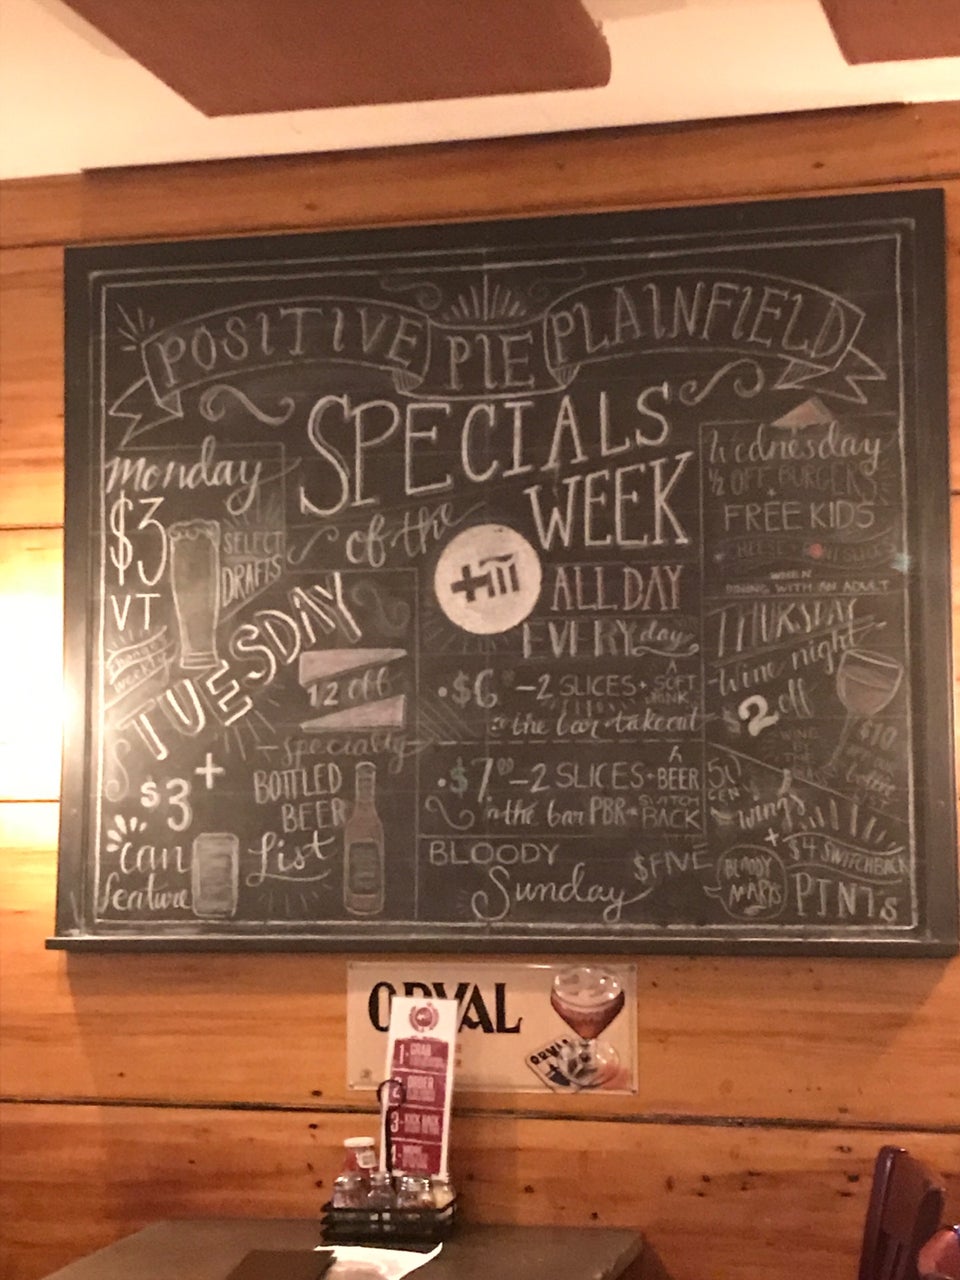 POSITIVE PIE PLAINFIELD
SPECIALS
of the
WEEK
Monday
$3
SELECT
DRAFTS
VT
Change
weekly
TUESDAY
$3
+
can
feature
12 off
specialty
BOTTLED
BEER
List
ALL DAY
EVERYday
• $6 – 2 SLICES + A SOFT DRINK
the bar + takeout
• $7.00 – 2 SLICES + A BEER
in the bar PBR or SWITCH BACK
BLOODY
Sunday
$FIVE
BLOODY
MARYS
Wednesday
½ OFF BURGERS
+
FREE KIDS
CHEESE
SLICE
WHEN
DINING WITH AN ADULT
THURSDAY
Wine night
$2 off
WINE
BY
THE
$10
50
CENT
wings
+
$4 SWITCHBACK
PINTs
ORVAL
ORVAL
1- GRAB
2- ORDER
3- KICK BACK